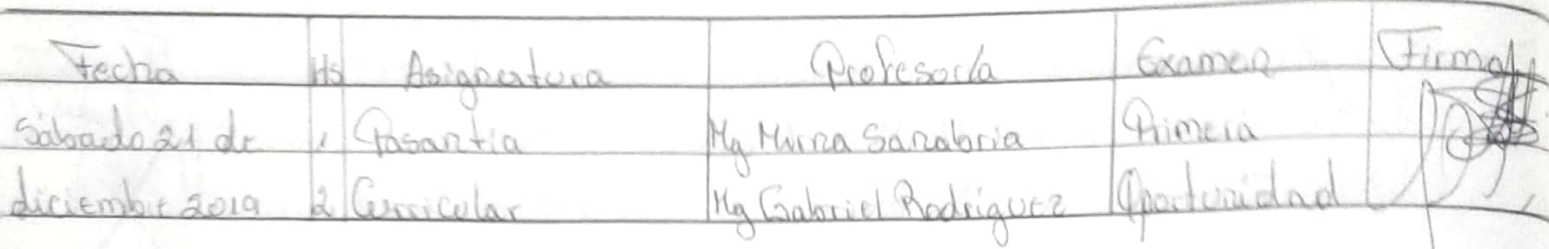 Fecha Hs Asignatura Profesor/a Examen Firma
Sábado 21 de Pasantia Mg Mirna Sanabria Primera
diciembre 2019 2 Curricular Mg Gabriel Rodriguez Oportunidad